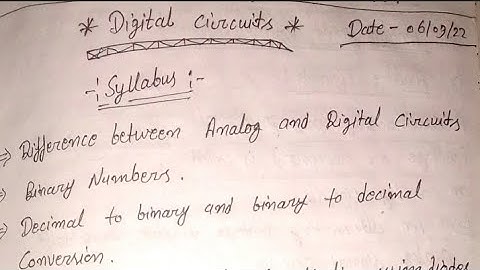 * Digital Circuits *
Date - 06/09/22
-¦ Syllabus ¦-
⇒ Difference between Analog and Digital Circuits
⇒ Binary Numbers.
⇒ Decimal to binary and binary to decimal
Conversion.
using diodes